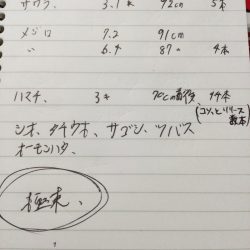 サワラ、 3.1k 92cm 5本
メジロ 7.2 91cm
〃 6.4 87〃 4本
ハマチ、 3k 70cm前後 14本
(コソッとリリース数本)
シオ、タチウオ、サゴシ、ツバス
オーモンハタ、
極東、